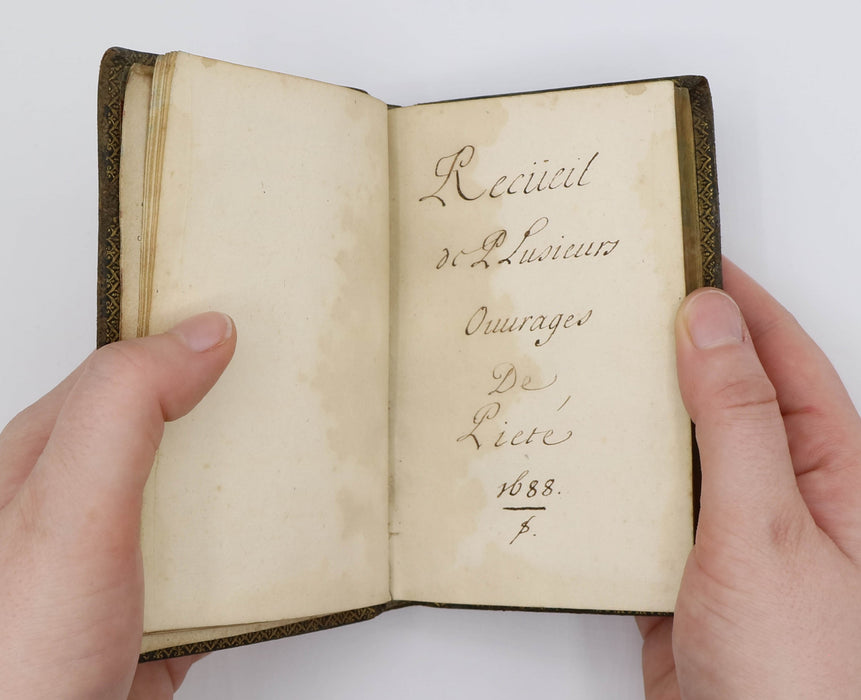 Recüeil
de PLusieurs
Ouurages
De
Pieté
1688.